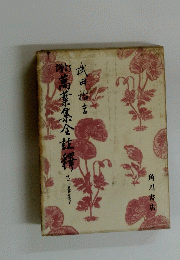 武田祐吉
萬葉集全註釋
角川書店